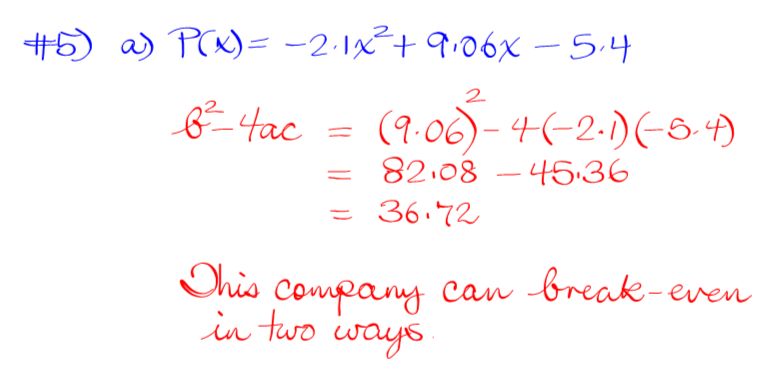 #5) a) P(x) = -2.1x² + 9.06x - 5.4
b²-4ac = (9.06)² - 4(-2.1)(-5.4)
= 82.08 - 45.36
= 36.72
This company can break-even
in two ways.